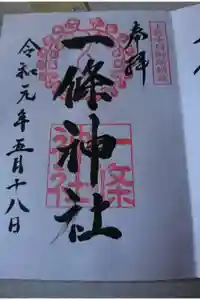 奉拝
一條神社
一条神社
令和元年五月十八日